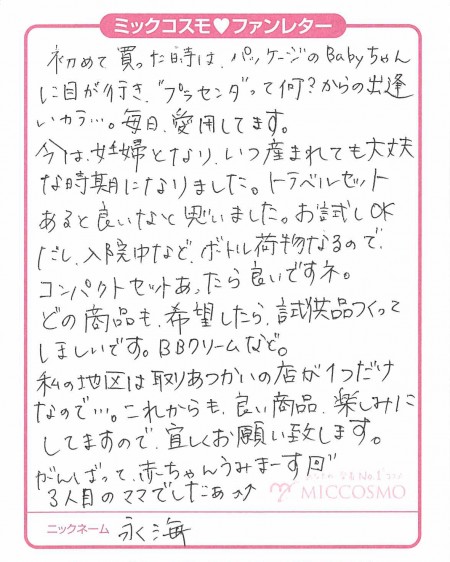 ミックコスモ♥ファンレター
初めて買った時は、パッケージのBabyちゃん
に目が行き、"プラセンタ"って何?からの出逢
いカラ…。毎日、愛用してます。
今は、妊婦となり、いつ産まれても大丈夫
な時期になりました。トラベルセット
あると良いなと思いました。お試しOK
だし、入院中など、ボトル荷物なるので、
コンパクトセットあったら良いですネ。
どの商品も、希望したら、試供品つくって
ほしいです。BBクリームなど。
私の地区は取りあつかいの店が1つだけ
なので…。これからも、良い商品、楽しみに
してますので、宜しくお願い致します。
がんばって、赤ちゃんうみまーす
3人目のママでしたぁ
MICCOSMO
ニックネーム 永海